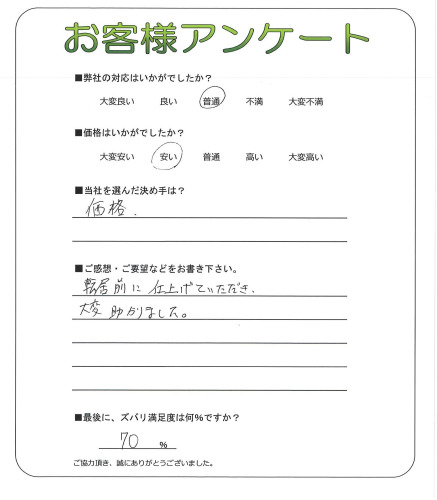 お客様アンケート
■弊社の対応はいかがでしたか？
大変良い 良い 普通 不満 大変不満
■価格はいかがでしたか？
大変安い 安い 普通 高い 大変高い
■当社を選んだ決め手は？
価格.
■ご感想・ご要望などをお書き下さい。
転居前に仕上げていただき、
大変助かりました。
■最後に、ズバリ満足度は何%ですか？
70 %
ご協力頂き、誠にありがとうございました。